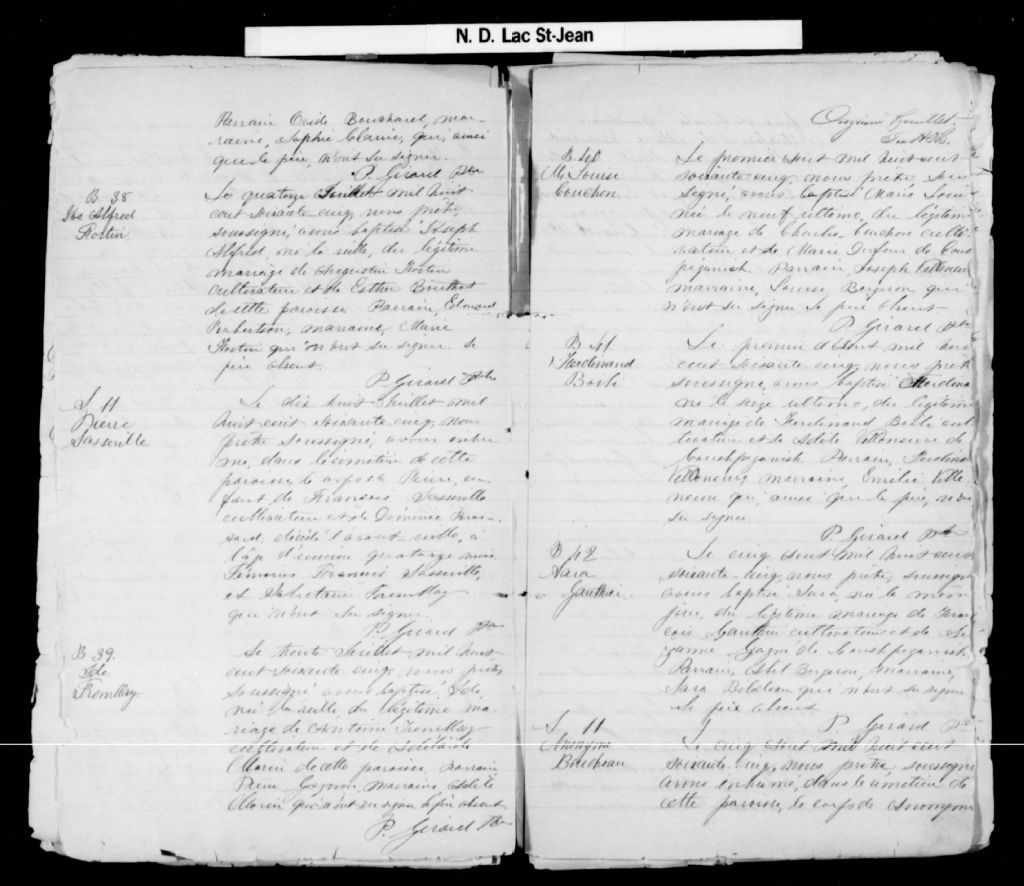 N. D. Lac St-Jean
Parrain Ovide Bouchard, mar-
raine, Sophie Clavie, qui, ainsi
que le père, n'ont su signer.
P. Girard Ptre
B. 38
Jos Alfred
Fortin
Le quatorze Juillet mil huit
cent soixante cinq, nous prêtre
soussigné, avons baptisé Joseph
Alfred, né la veille, du légitime
mariage de Augustin Fortin
cultivateur et de Esther Bouchard
de cette paroisse Parrain, Edouard
Robertson, marraine, Marie
Fortin qui n'ont su signer. Le
père absent.
P. Girard Ptre
S. 11
Pierre
Lasseville
Le dix huit Juillet mil
huit cent soixante cinq, nous
prêtre soussigné, avons inhu-
mé, dans le cimetière de cette
paroisse, le corps de Pierre, en-
fant de François Lasseville
cultivateur et de
décédé l'avant veille, à
l'âge d'environ quatorze mois
Témoins François Lasseville,
et Tremblay
qui n'ont su signer.
P. Girard Ptre
B 39.
Ide
Tremblay
Le trente Juillet mil huit
cent soixante cinq, nous prêtre
soussigné avons baptisé, Ide,
née la veille, du légitime ma-
riage de Antoine Tremblay
cultivateur et de
Marin de cette paroisse. Parrain
Pierre Gagnon, marraine, Adèle
Marin qui n'ont su signer le père absent
P. Girard Ptre
Onzième feuillet
B 40
M. Louise
Couchon
Le premier Août mil huit cent
soixante cinq, nous prêtre sous
signé, avons baptisé Marie Loui
née le neuf ultimo, du légitime
mariage de Charles Couchon culti-
vateur et de Marie Dufour de Cous
péganish. Parrain, Joseph Villeneuve
marraine, Louise Bergeron qui
n'ont su signer le père absent
P. Girard Ptre
B 41
Ferdinand
Boili
Le premier d'Août mil huit
cent soixante cinq, nous prêtre
soussigné, avons baptisé Ferdina
né le seize ultimo, du légitime
mariage de Ferdinand Boili cul
tivateur et de Adèle Villeneuve de
Coushpeganish Parrain, Ferdinand
Villeneuve, marraine, Emilie Ville-
neuve qui ainsi que le père, n'ont
su signer
P. Girard Ptre
B 42
Sara
Gauthier
Le cinq Août mil huit cent
soixante-cinq, nous prêtre, soussigné
avons baptisé Sara, née le même
jour, du légitime mariage de Fran
çois Gauthier cultivateur et de Su
zanne Gagné de Coushpeganish
Parrain, Bergeron, marraine,
Sara Bilodeau qui n'ont su signer
Le père absent
P. Girard Ptre
S 11
Anonyme
Boudreau
Le cinq Août mil huit cent
soixante cinq, nous prêtre soussigné
avons inhumé, dans le cimetière de
cette paroisse, le corps de Anonyme